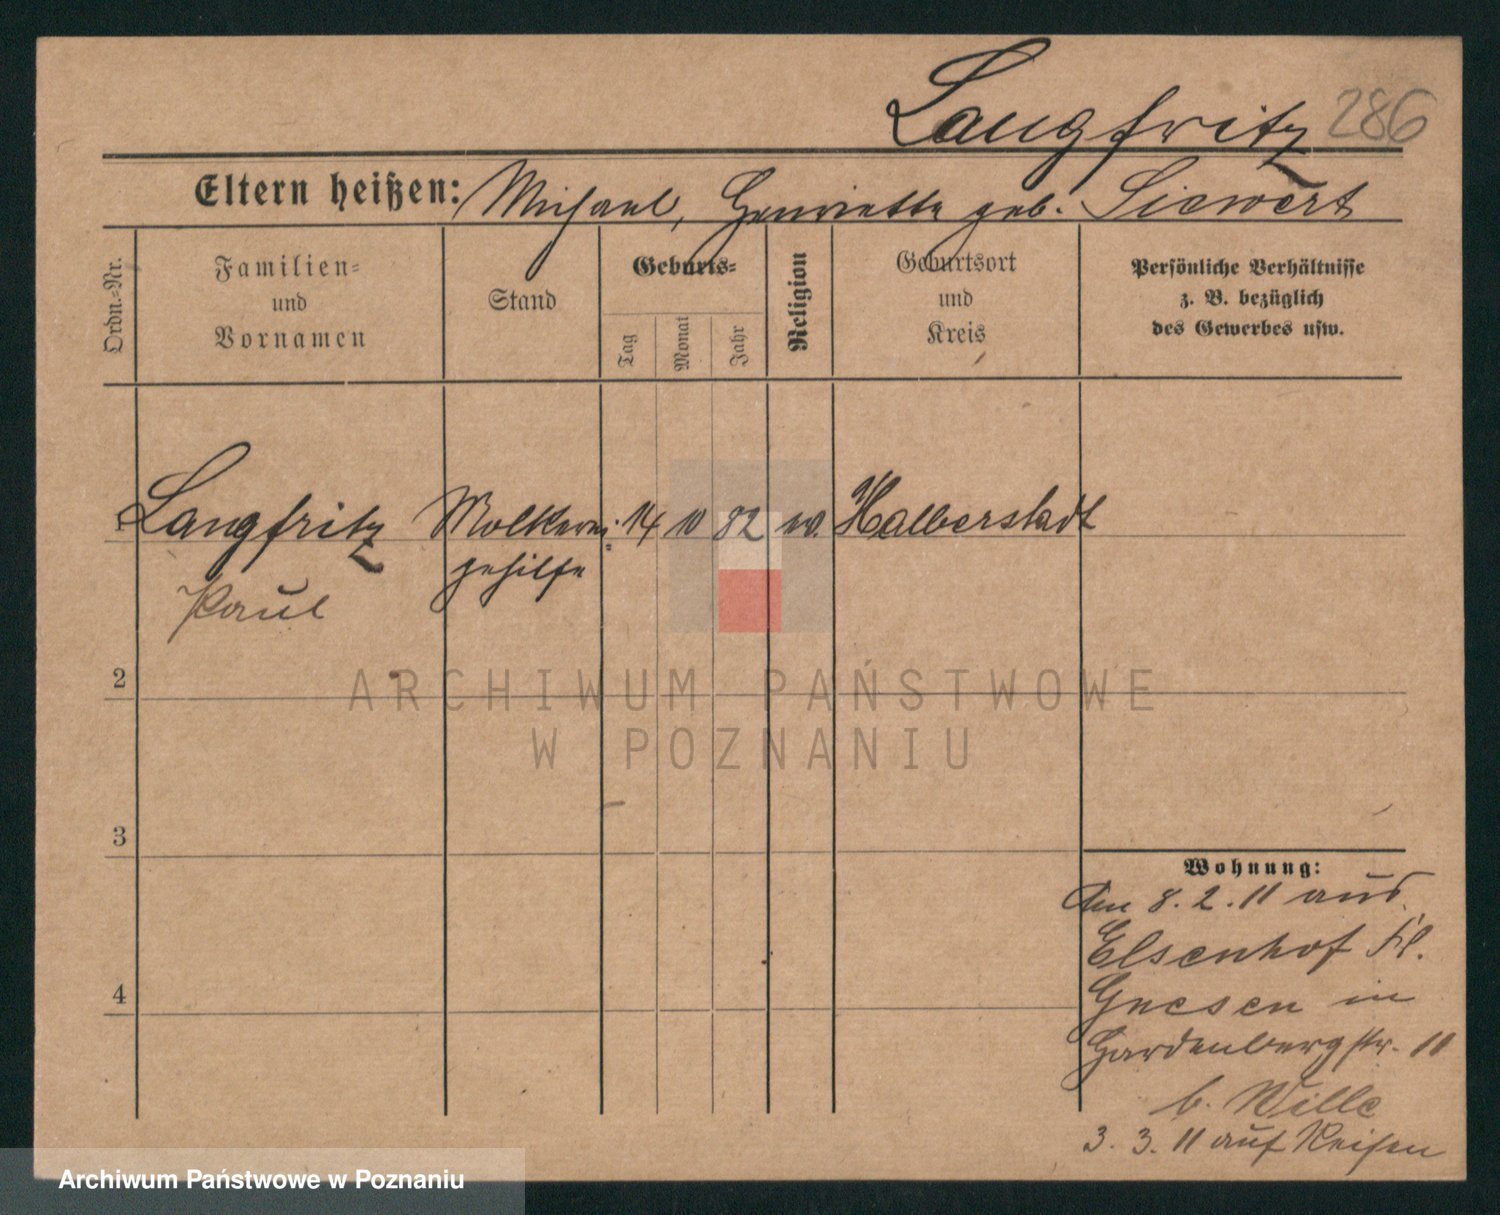 Langfritz 286
Eltern heißen: Michael, Henriette geb. Siewert
Ordn.=Nr.
Familien=
und
Vornamen
Stand
Geburts=
Tag
Monat
Jahr
Religion
Geburtsort
und
Kreis
Persönliche Verhältnisse
z. B. bezüglich
des Gewerbes usw.
1 Langfritz Molkerei= 14 10 82 ev. Halberstadt
Paul gehilfe
2
3
4
Wohnung:
Am 8.2.11 aus
Elsenhof Kr.
Gnesen in
Hardenbergstr. 11
b. Wille
3. 3. 11 auf Reisen
ARCHIWUM PAŃSTWOWE
W POZNANIU
Archiwum Państwowe w Poznaniu